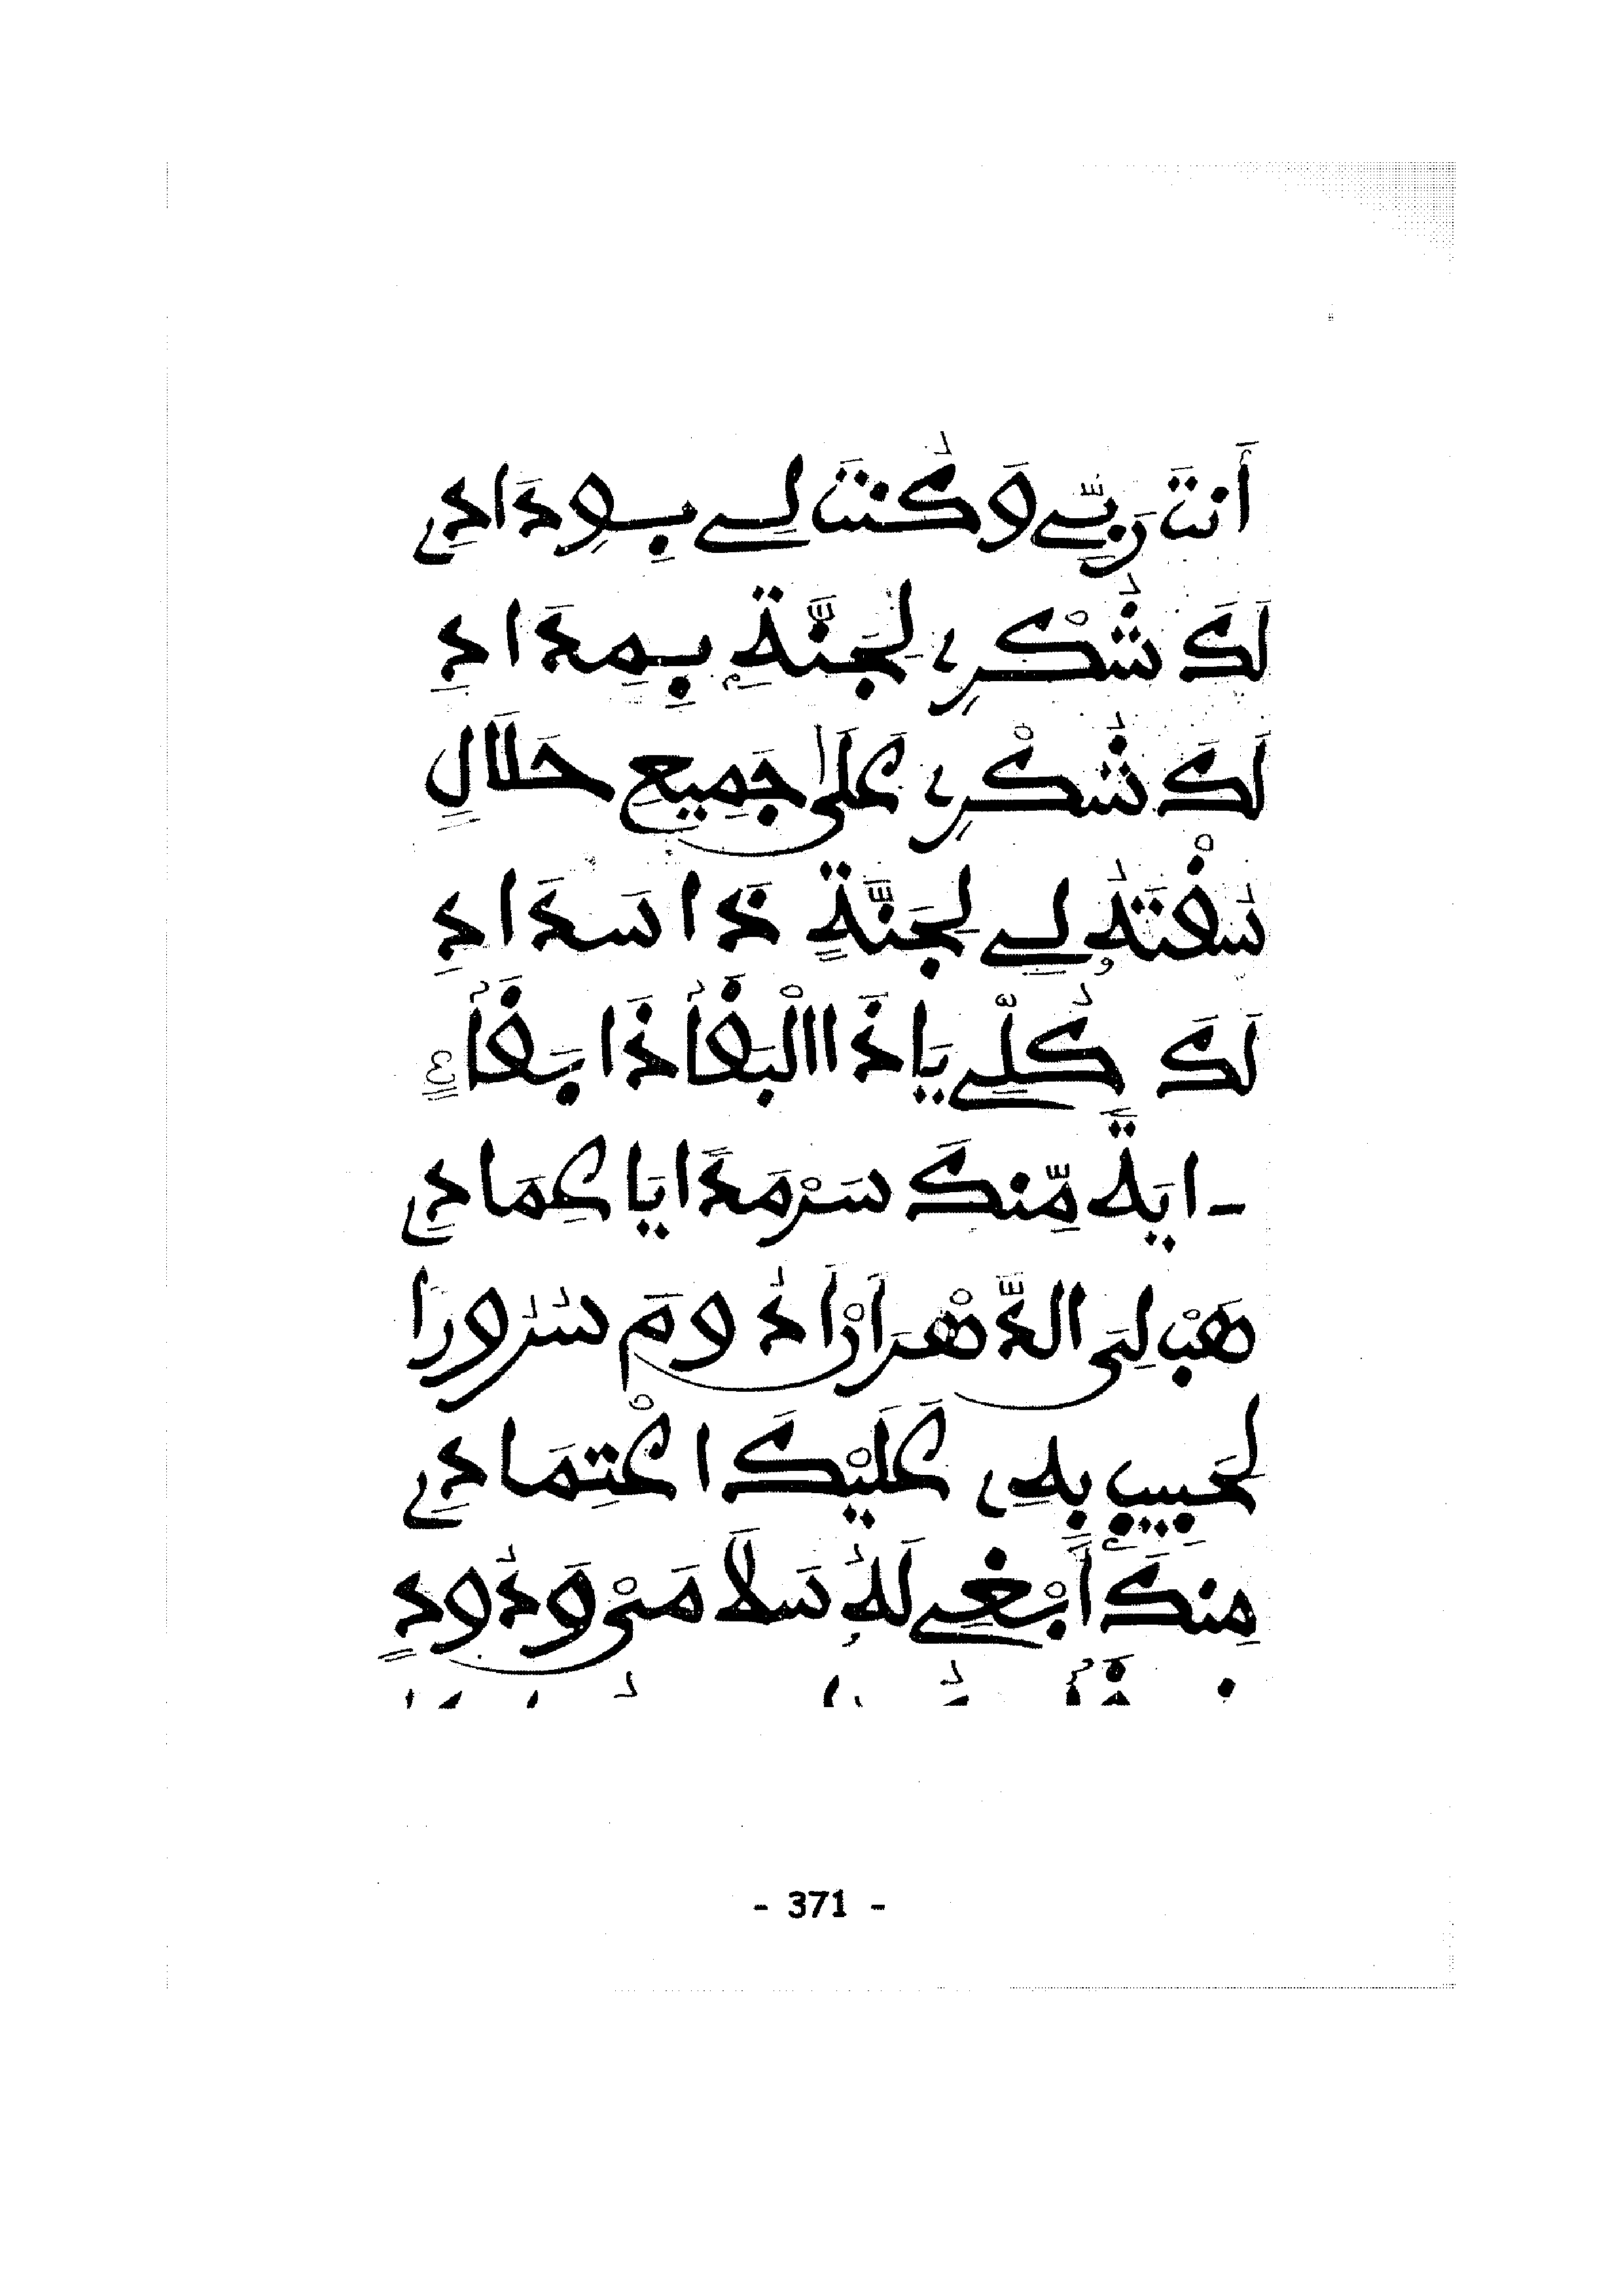 أَنتَ رَبِّے وَكُنتَ لِے بِوِدَادِے
لَكَ شُكْرِے لِجَنَّةٍ بِمِدَادِ
لَكَ شُكْرِے عَلَىٰ جَمِيعِ حَلَالِ
سُفْتَهُ لِے لِجَنَّةٍ ذَا سَدَادِ
لَكَ كُلِّے يَا ذَا الْبَفَا ذَا بَفَاءٍ
ـايَةً مِّنكَ سَرْمَدًا يَا عِمَادِے
هَبْ لِنَى الدَّهْرَ أَزْ أَدُومَ سُرُورًا
لِحَبِيبٍ بِهِے عَلَيْكَ اعْتِمَادِے
مِنكَ أَبْغِے لَهُ سَلَامَىْ وَدُودٍ
- 371 -